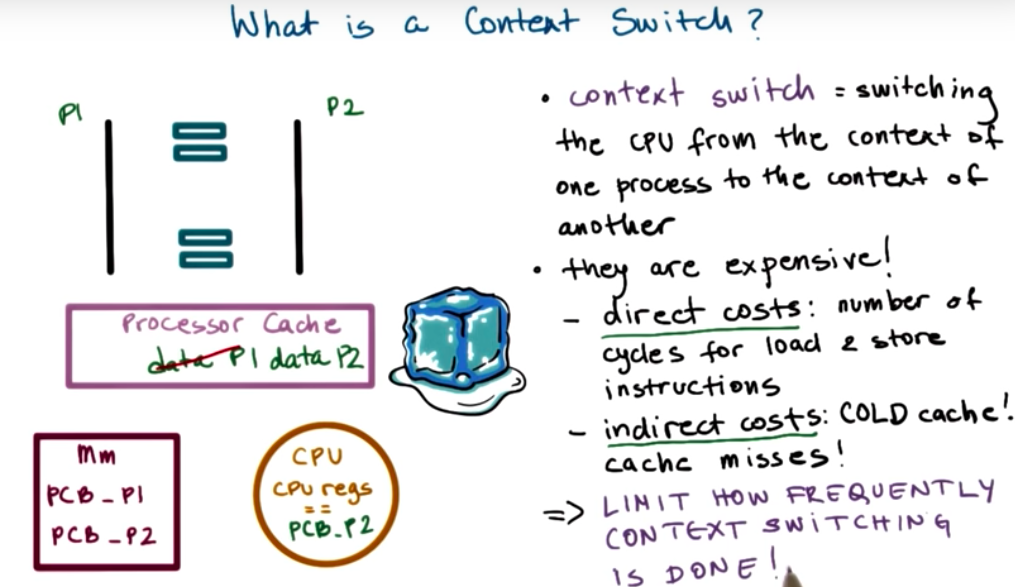 What is a Context Switch?
P1
P2
Processor Cache
data P1 data P2
mm
PCB_P1
PCB_P2
CPU
CPU regs
==
PCB_P2
• context switch = switching
the CPU from the context of
one process to the context of
another
• they are expensive!
- direct costs: number of
cycles for load & store
instructions
- indirect costs: COLD cache!
cache misses!
=> LIMIT HOW FREQUENTLY
CONTEXT SWITCHING
IS DONE!